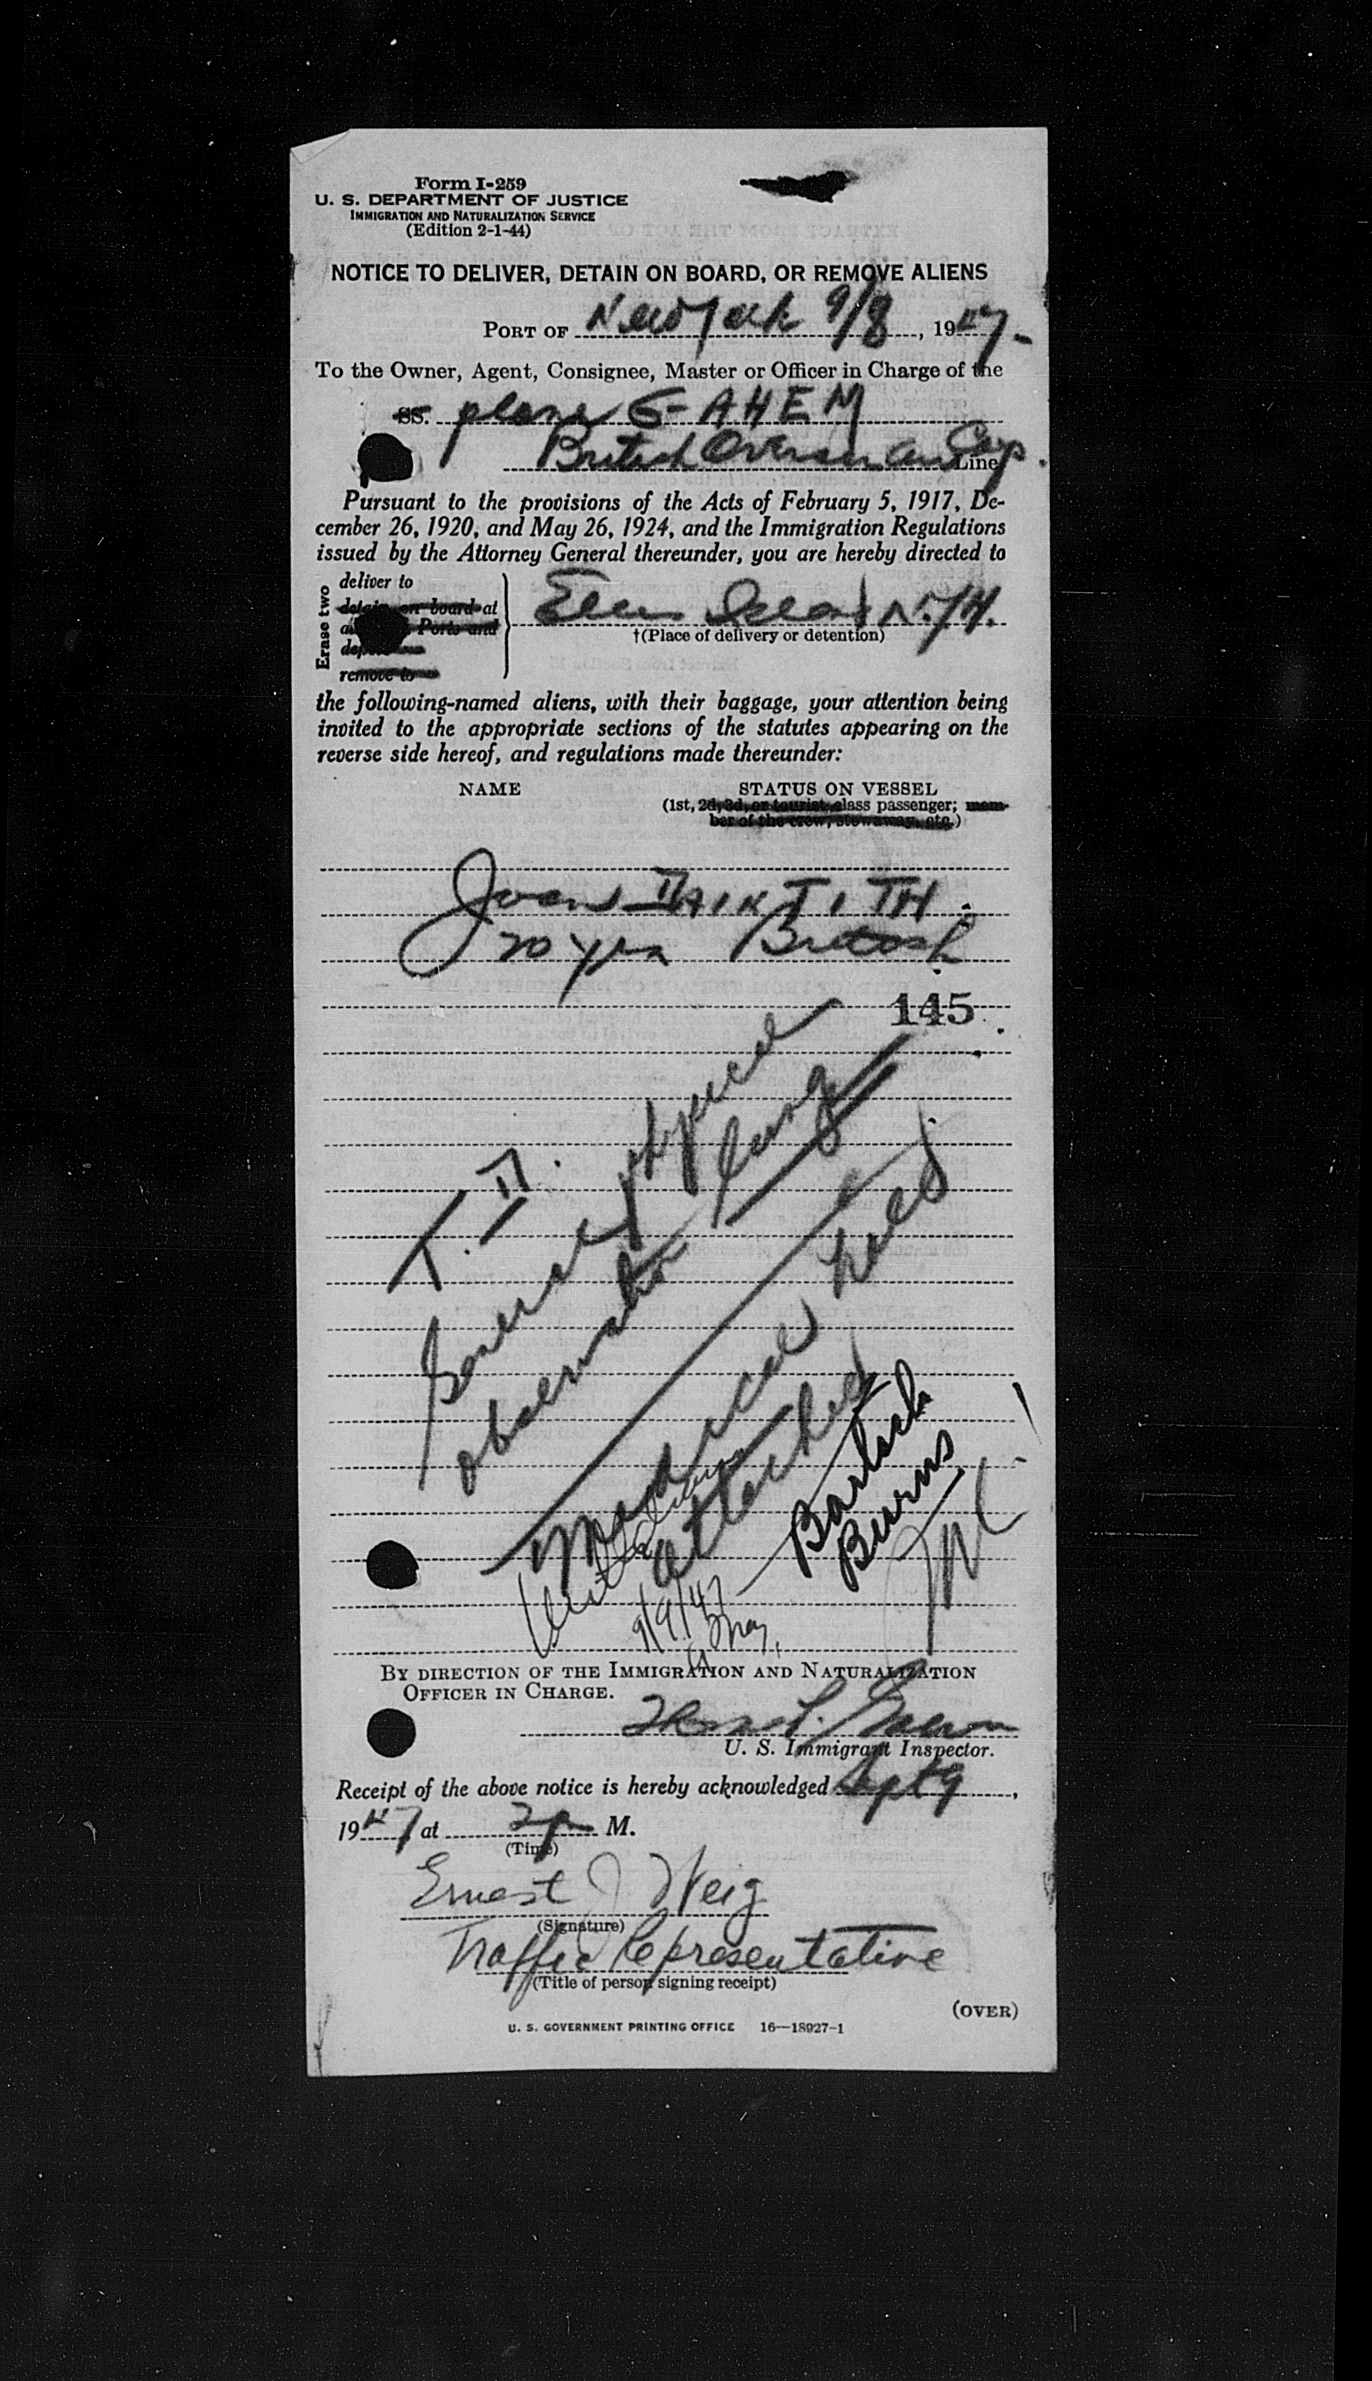 Form I-259
U. S. DEPARTMENT OF JUSTICE
IMMIGRATION AND NATURALIZATION SERVICE
(Edition 2-1-44)
NOTICE TO DELIVER, DETAIN ON BOARD, OR REMOVE ALIENS
PORT OF New York 9/8, 1947
To the Owner, Agent, Consignee, Master or Officer in Charge of the
SS. plane G-AHEM
British Overseas Air Corp. Line
Pursuant to the provisions of the Acts of February 5, 1917, De-
cember 26, 1920, and May 26, 1924, and the Immigration Regulations
issued by the Attorney General thereunder, you are hereby directed to
Erase two
deliver to
detain on board at
Ports and
remove to
Ellis Island N.Y.H.
†(Place of delivery or detention)
the following-named aliens, with their baggage, your attention being
invited to the appropriate sections of the statutes appearing on the
reverse side hereof, and regulations made thereunder:
NAME
STATUS ON VESSEL
(1st, 2d, 3d, or tourist class passenger; mem-
ber of the crew, stowaway, etc.)
Joan
20 yrs British
145
T. D.
observation lung
Medical hold
attached
Bartsch
Burns
9/9/47
BY DIRECTION OF THE IMMIGRATION AND NATURALIZATION
OFFICER IN CHARGE.
U. S. Immigrant Inspector.
Receipt of the above notice is hereby acknowledged Sept 9,
1947 at 2 p M.
(Time)
Ernest J Weig
(Signature)
Traffic Representative
(Title of person signing receipt)
(OVER)
U. S. GOVERNMENT PRINTING OFFICE 16—18927-1